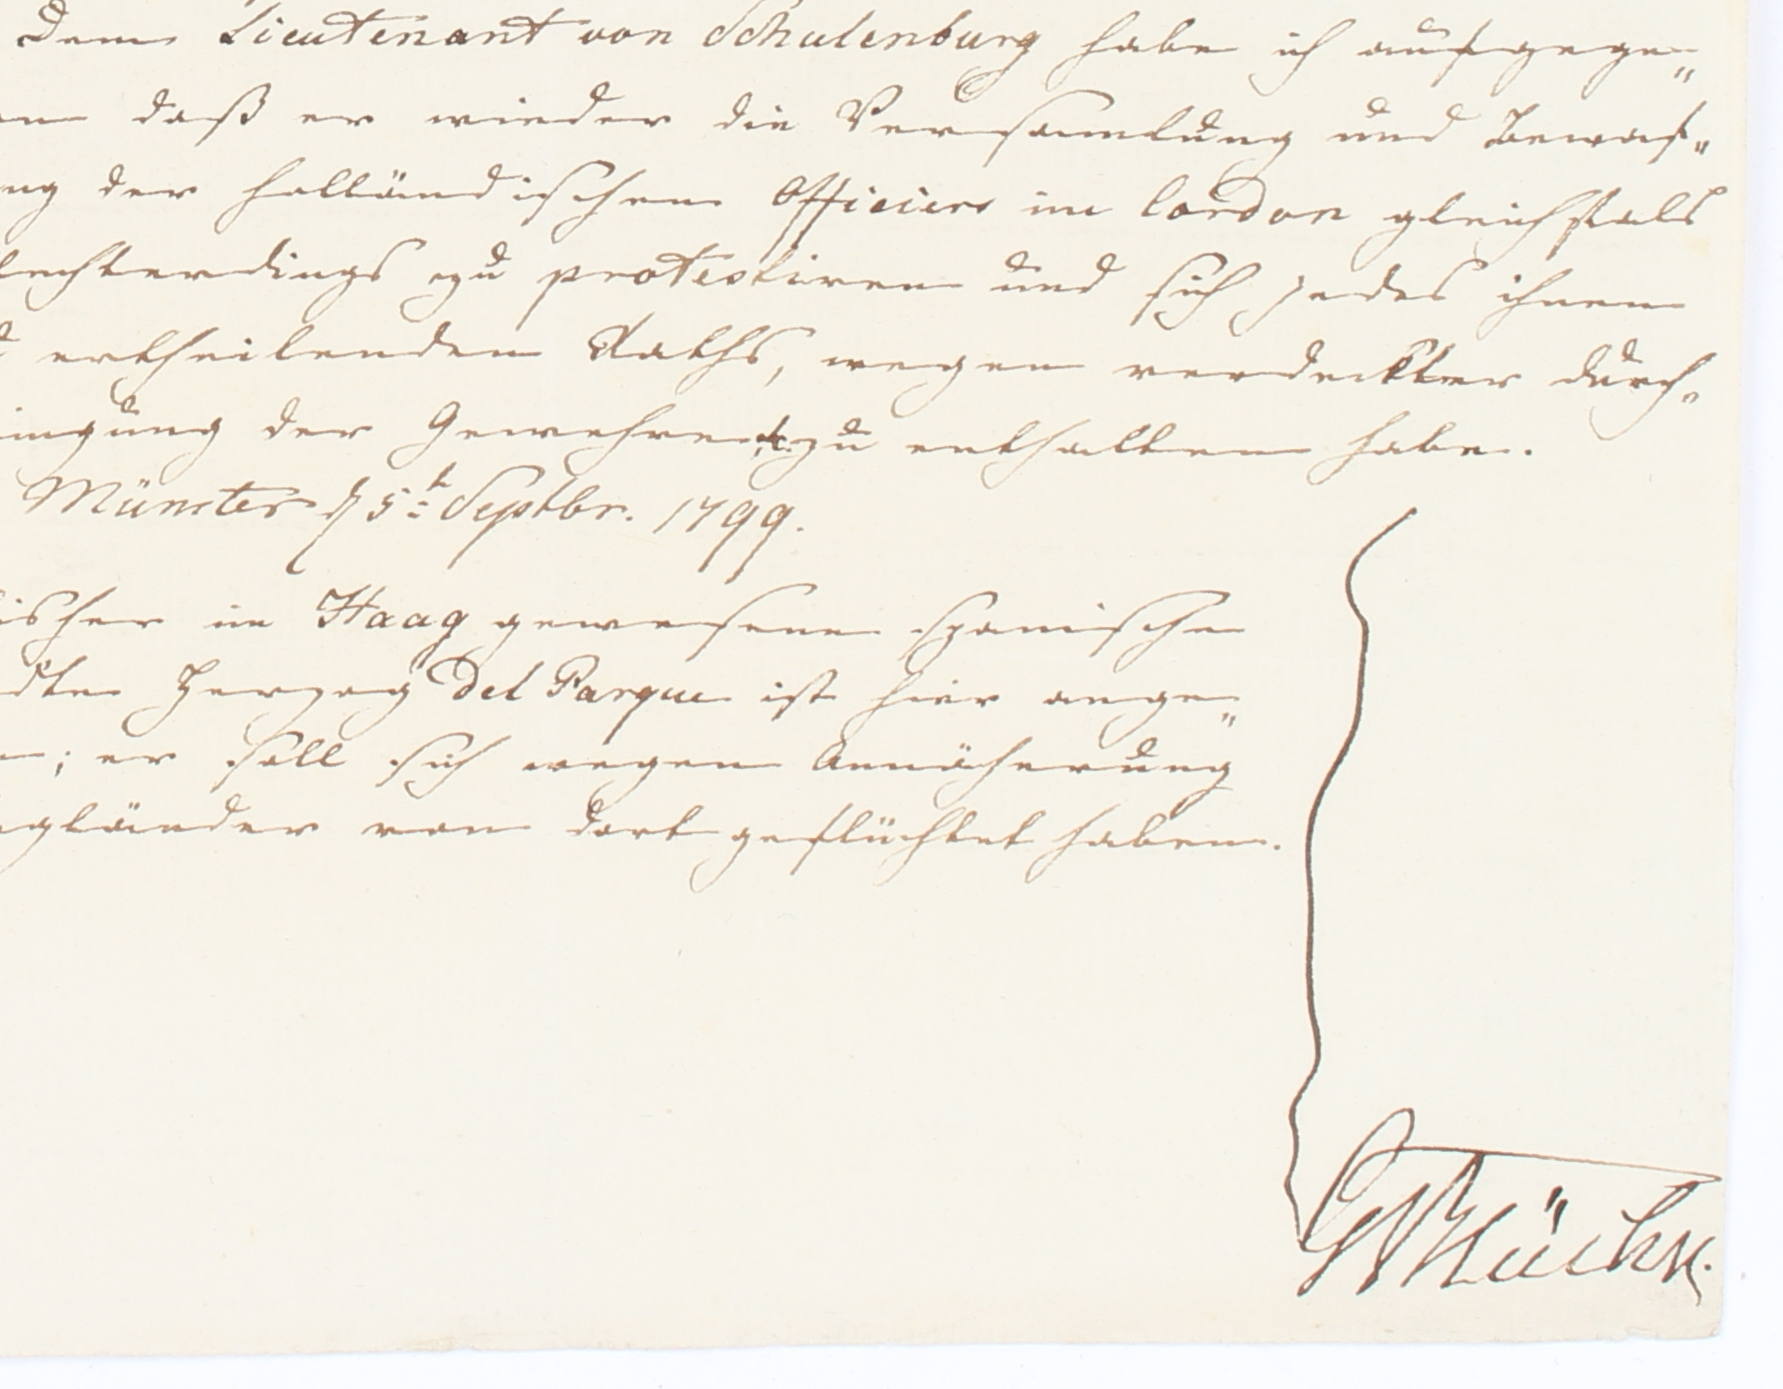 Dem Lieutenant von Schulenburg habe ich aufgege„
en daß er wieder die Versamlung und Bewaf„
ng der holländischen Officiere im Cordon gleichfals
lechterdings zu protestiren und sich jedes ihnen
ertheilenden Raths, wegen verdeckter durch„
ingung der Gewehre &c. zu enthalten habe.
Münster d 5t Septbr. 1799.
isher im Haag gewesene spanische
dte Herzog Del Parque ist hier ange„
; er soll sich wegen Annäherung
ngländer von dort geflüchtet haben.
Blücher.